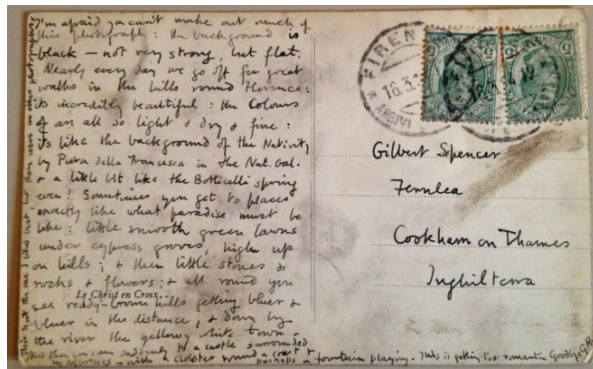 I'm afraid you can't make out much of
this photograph: the background is
black — not very strong, but flat.
Nearly every day we go off for great
walks in the hills round Florence:
its incredibly beautiful: the colours
& air all so light & dry & fine:
its like the background of the Nativity
by Piera della Francesca in the Nat. Gal.
& a little bit like the Botticelli spring
even! Sometimes you get to places
exactly like what paradise must be
like: little smooth green lawns
under cypress groves, high up
on hills: & then little stones &
rocks & flowers: & all round you
Le Christ en Croix.
see reddy-brown hills getting bluer &
bluer in the distance, & down by
the river the yellowy white town.
then you come suddenly to a castle surrounded
by cypresses - with a cloister round a court &
perhaps a fountain playing. This is getting too romantic. Goodbye
This isn't the one I liked best, but there were no other photographs
FIRENZE
16.3.1
ARRIVI
Gilbert Spencer
Fernlea
Cookham on Thames
Inghilterra